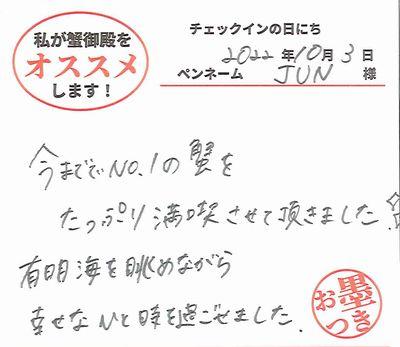 私が蟹御殿を
オススメ
します！
チェックインの日にち
2022年10月3日
ペンネーム JUN 様
今まででNo.1の蟹を
たっぷり満喫させて頂きました
有明海を眺めながら
幸せなひと時を過ごせました.
お墨つき